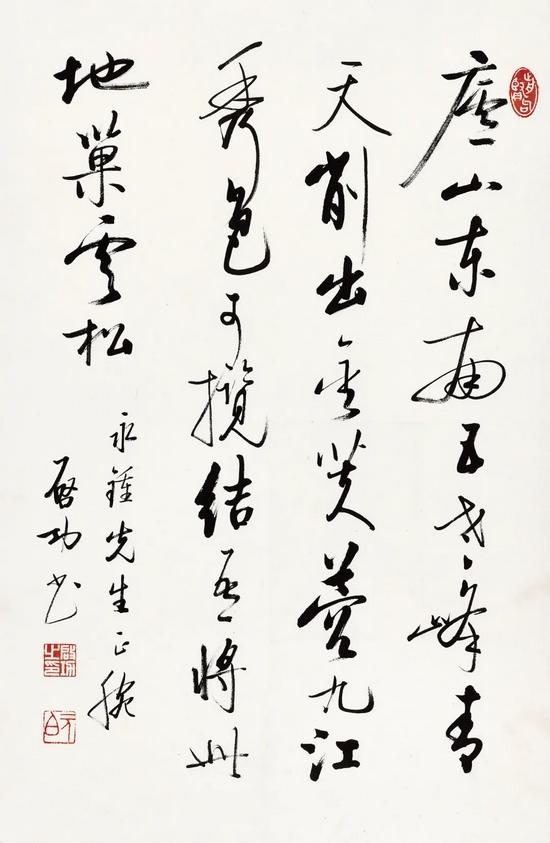 廬山東南五老峰青
天削出金芙蓉九江
秀色可攬結吾將此
地巢雲松
永鍾先生正腕
啓功書
啓功之印
元白